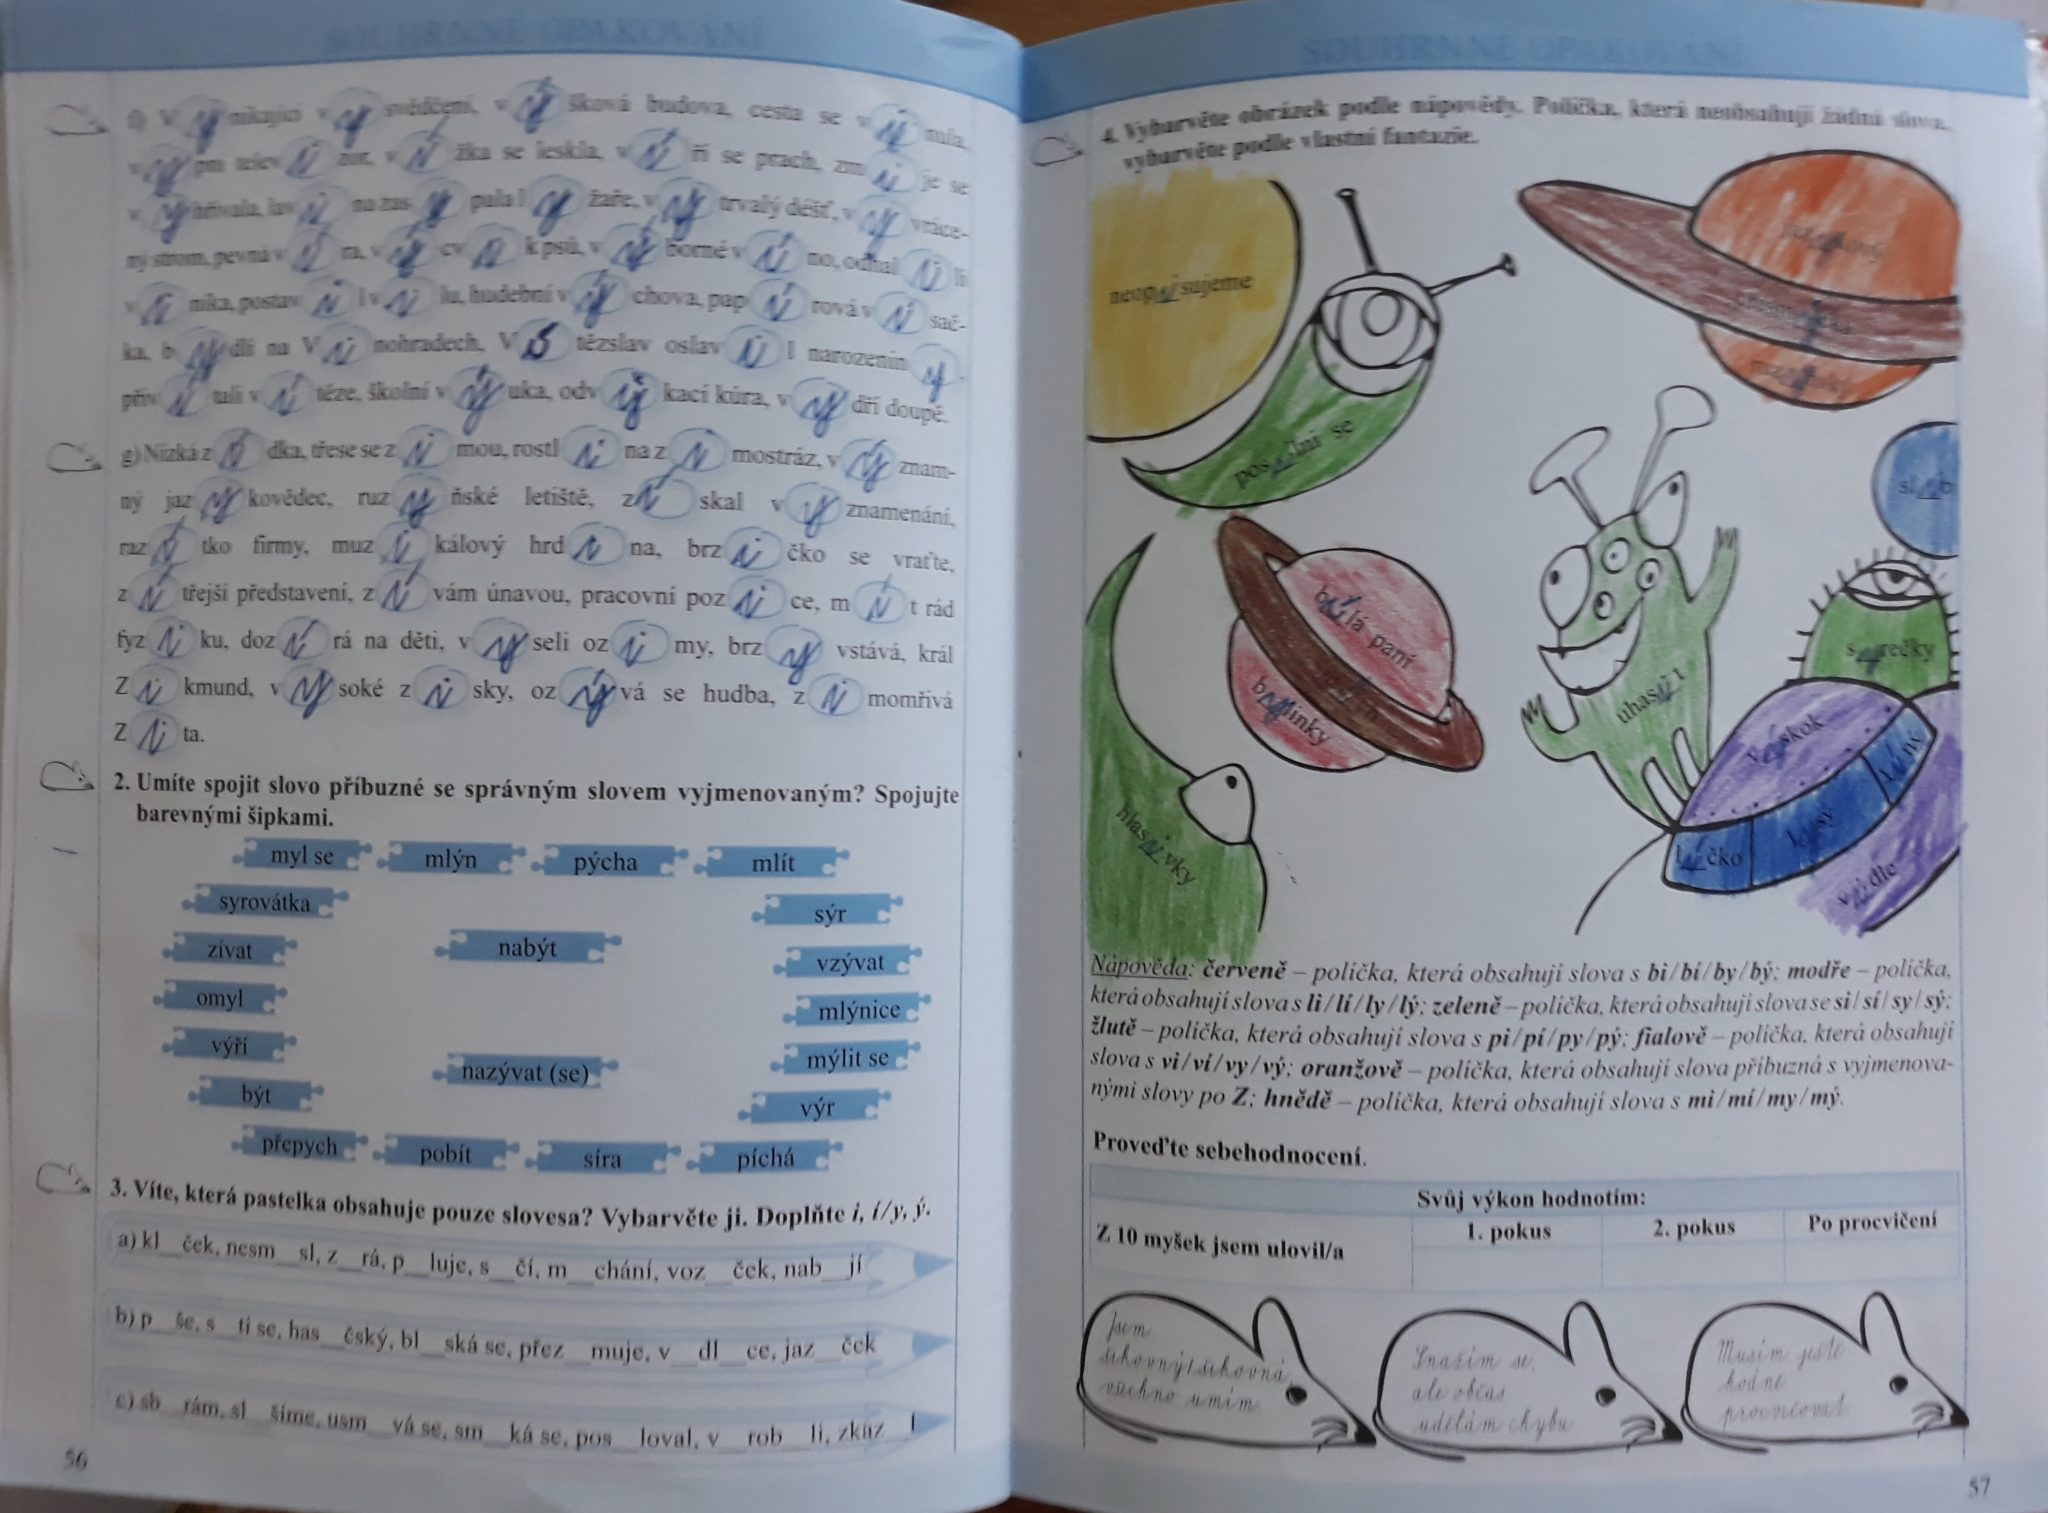 SOUHRNNÉ OPAKOVÁNÍ
f) Vynikající vysvědčení, výšková budova, cesta se vinula,
vypni televizor, vížka se leskla, víří se prach, zmije se
vyhřívala, lavina zasypala lyžaře, vytrvalý déšť, vyvráce-
ný strom, pevná víra, výcvik psů, výborné víno, odhalili
viníka, postavil vilu, hudební výchova, papírová visač-
ka, bydlí na Vinohradech, Vítězslav oslavil narozeniny,
přivítali vítěze, školní výuka, odvykací kúra, vydří doupě.
g) Nízká zídka, třese se zimou, rostlina zimostráz, význam-
ný jazykovědec, ruzyňské letiště, získal vyznamenání,
razítko firmy, muzikálový hrdina, brzičko se vraťte,
zítřejší představení, zívám únavou, pracovní pozice, mít rád
fyziku, dozírá na děti, vyseli ozimy, brzy vstává, král
Zikmund, vysoké zisky, ozývá se hudba, zimomřivá
Zita.
2. Umíte spojit slovo příbuzné se správným slovem vyjmenovaným? Spojujte
barevnými šipkami.
myl se mlýn pýcha mlít
syrovátka sýr
zívat nabýt vzývat
omyl mlýnice
výří nazývat (se) mýlit se
být výr
přepych pobít síra píchá
3. Víte, která pastelka obsahuje pouze slovesa? Vybarvěte ji. Doplňte i, í/y, ý.
a) kl__ček, nesm__sl, z__rá, p__luje, s__čí, m__chání, voz__ček, nab__jí
b) p__še, s__tí se, has__čský, bl__ská se, přez__muje, v__dl__ce, jaz__ček
c) sb__rám, sl__šíme, usm__vá se, sm__ká se, pos__loval, v__rob__li, zkaz__l
56
SOUHRNNÉ OPAKOVÁNÍ
4. Vybarvěte obrázek podle nápovědy. Políčka, která neobsahují žádná slova,
vybarvěte podle vlastní fantazie.
neopisujeme
posilni se
bílá paní
bylinky
uhasit
syrečky
výskok
hlasivky
líčko
lysý
vidle
Nápověda: červeně – políčka, která obsahují slova s bi/bí/by/bý; modře – políčka,
která obsahují slova s li/lí/ly/lý; zeleně – políčka, která obsahují slova se si/sí/sy/sý;
žlutě – políčka, která obsahují slova s pi/pí/py/pý; fialově – políčka, která obsahují
slova s vi/ví/vy/vý; oranžově – políčka, která obsahují slova příbuzná s vyjmenova-
nými slovy po Z; hnědě – políčka, která obsahují slova s mi/mí/my/mý.
Proveďte sebehodnocení.
Svůj výkon hodnotím:
Z 10 myšek jsem ulovil/a 1. pokus 2. pokus Po procvičení
Jsem
šikovný/šikovná,
všechno umím.
Snažím se,
ale občas
udělám chybu.
Musím ještě
hodně
procvičovat.
57